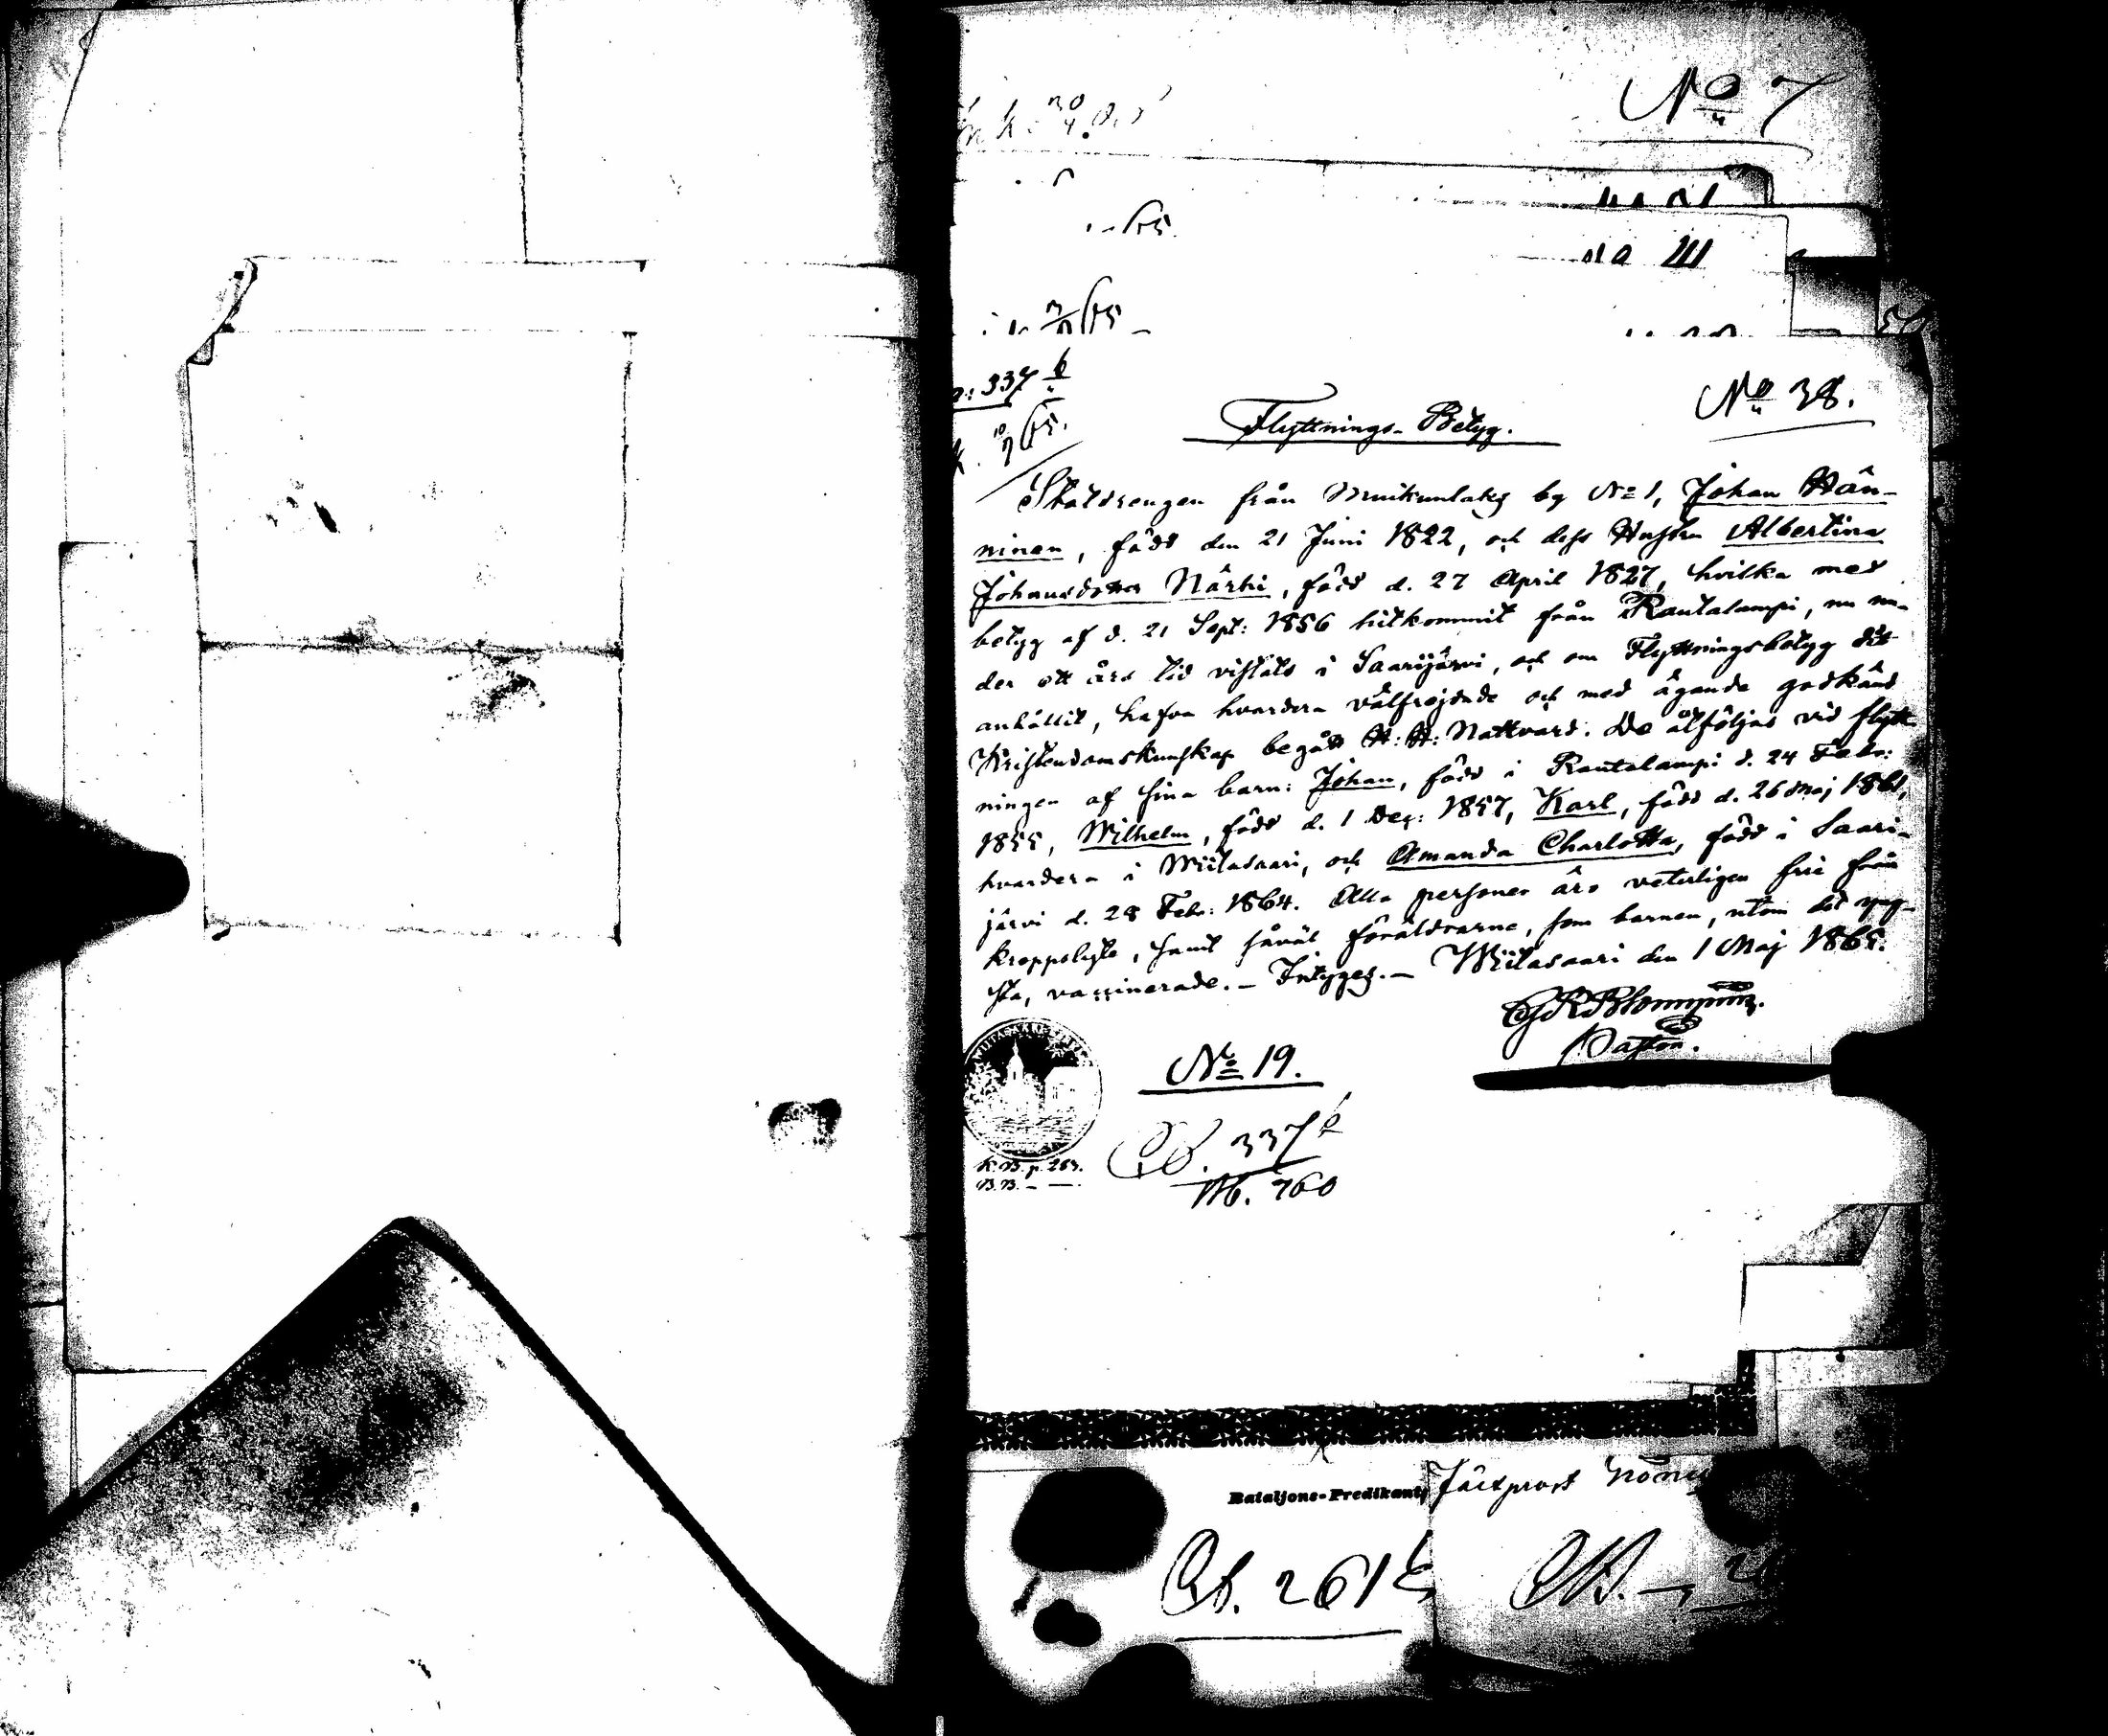 No 7
No 38.
337 b
Flyttnings-Betyg.
Statdrengen från Muikunlaks by No 1, Johan Hän-
ninen, född den 21 Juni 1822, och dess Hustru Albertina
Johansdotter Närhi, född d. 27 April 1827, hvilka med
betyg af d. 21 Sept: 1856 hitkommit från Rautalampi, nu un-
der ett års tid vistats i Saarijärvi, och om Flyttningsbetyg dit
anhållit, hafva hvardera välfrejdade och med ägande godkänd
Kristendomskunskap begått H: H: Nattvard. De åtföljas vid flytt-
ningen af sina barn: Johan, född i Rautalampi d. 24 Febr:
1855, Wilhelm, född d. 1 Dec: 1857, Karl, född d. 26 Maj 1861,
hvardera i Wiitasaari, och Amanda Charlotta, född i Saari-
järvi d. 28 Febr: 1864. Alla personer äro veterligen frie från
kroppslyte, samt såväl föräldrarne, som barnen, utom det yng-
sta, vaccinerade. – Intygas. – Wiitasaari den 1 Maj 1865.
Pastor.
No 19.
337 b
K.B. p. 263.
B.B. – –
760
Bataljons-Predikants
261